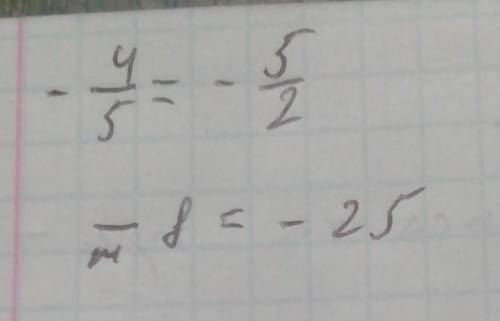 - 4/5 = - 5/2
- 8 = - 25